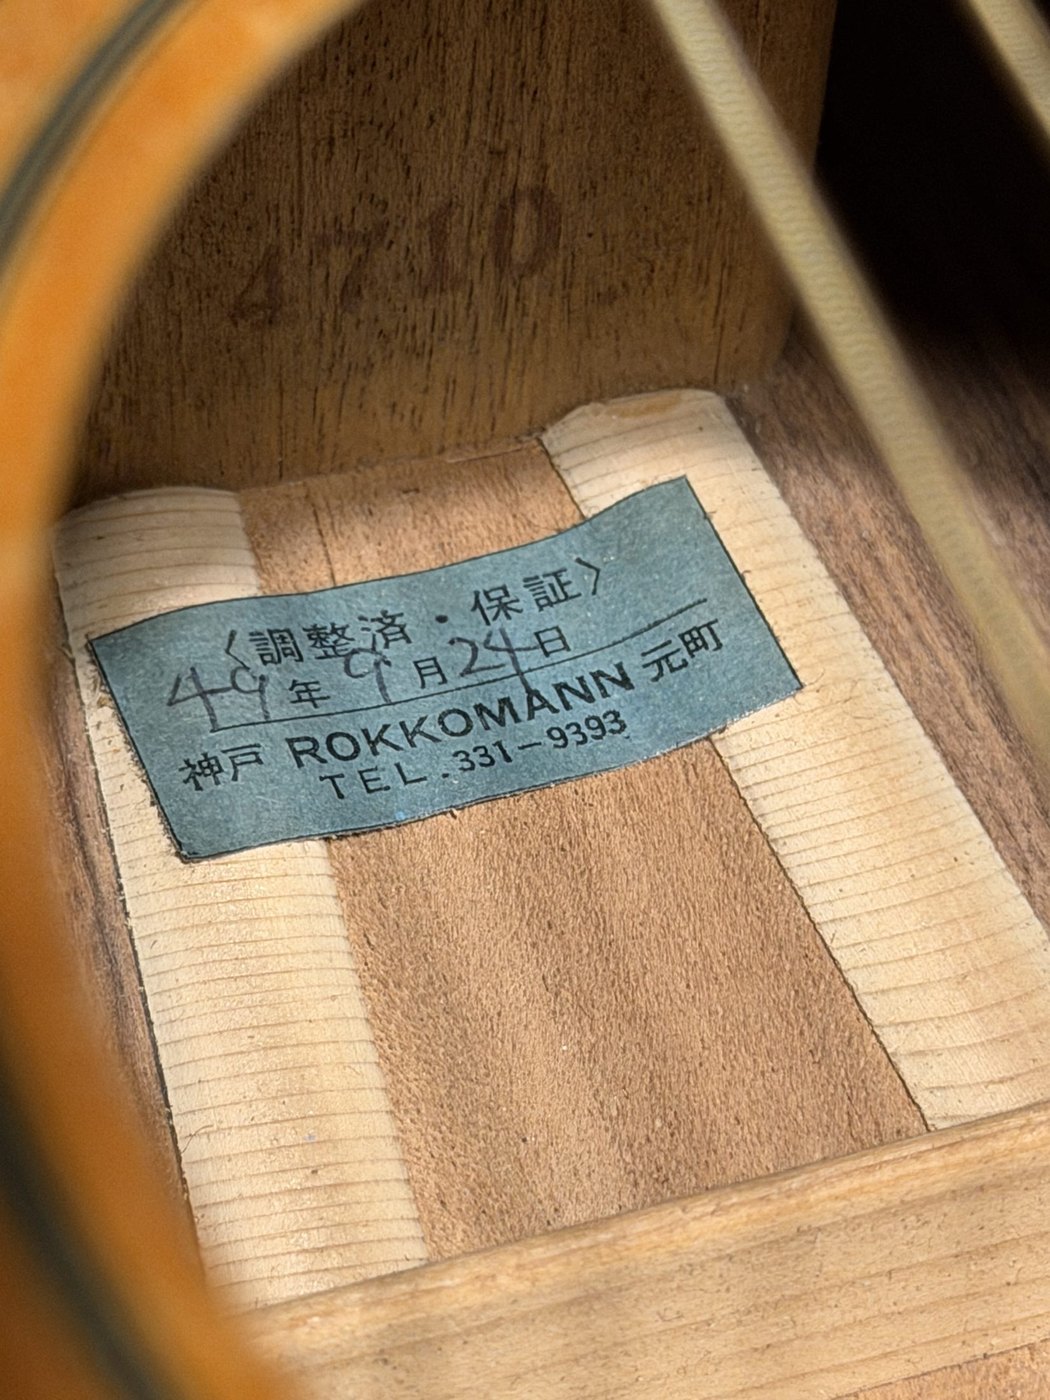 4710
〈調整済・保証〉
49年9月24日
神戸 ROKKOMANN 元町
TEL.331-9393